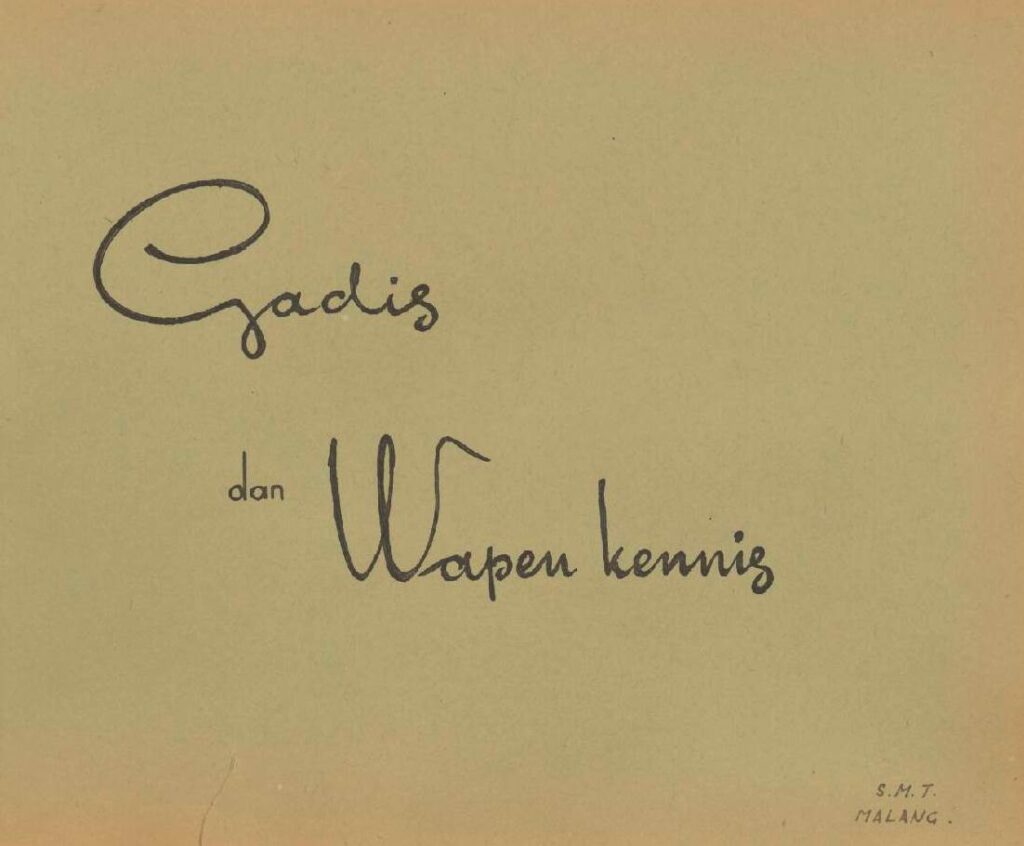 Gadis
dan Wapen kennis
S.M.T.
MALANG.